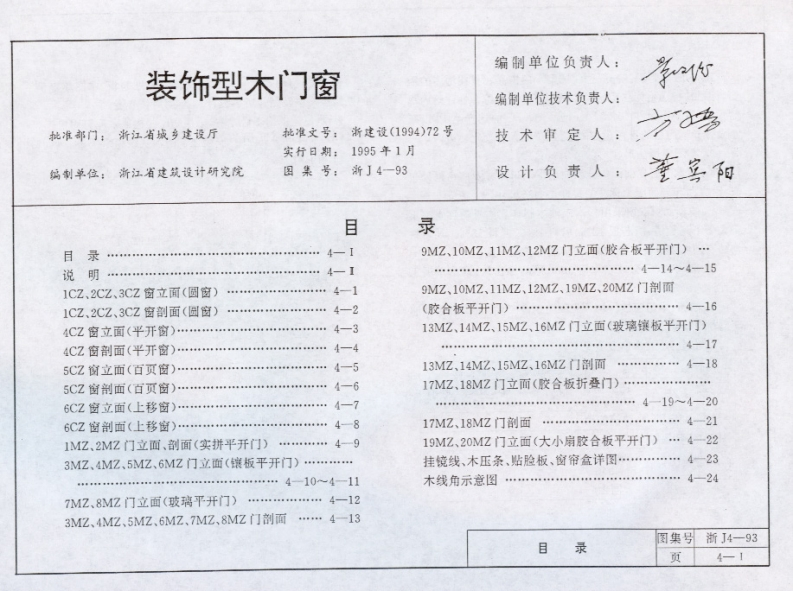 装饰型木门窗
批准部门：浙江省城乡建设厅
批准文号：浙建设(1994)72号
实行日期：1995年1月
编制单位：浙江省建筑设计研究院
图集号：浙J4—93
编制单位负责人：
编制单位技术负责人：
技术审定人：
设计负责人：董宾阳
目 录
目 录 …………………………………… 4—Ⅰ
说 明 …………………………………… 4—Ⅱ
1CZ、2CZ、3CZ窗立面(圆窗) ……………… 4—1
1CZ、2CZ、3CZ窗剖面(圆窗) ……………… 4—2
4CZ窗立面(平开窗)………………………… 4—3
4CZ窗剖面(平开窗)………………………… 4—4
5CZ窗立面(百页窗)………………………… 4—5
5CZ窗剖面(百页窗)………………………… 4—6
6CZ窗立面(上移窗)………………………… 4—7
6CZ窗剖面(上移窗)………………………… 4—8
1MZ、2MZ门立面、剖面(实拼平开门) ………… 4—9
3MZ、4MZ、5MZ、6MZ门立面(镶板平开门)…………
………………………………… 4—10～4—11
7MZ、8MZ门立面(玻璃平开门) …………… 4—12
3MZ、4MZ、5MZ、6MZ、7MZ、8MZ门剖面 …… 4—13
9MZ、10MZ、11MZ、12MZ门立面(胶合板平开门) …
………………………………… 4—14～4—15
9MZ、10MZ、11MZ、12MZ、19MZ、20MZ门剖面
(胶合板平开门) …………………………… 4—16
13MZ、14MZ、15MZ、16MZ门立面(玻璃镶板平开门)
………………………………………… 4—17
13MZ、14MZ、15MZ、16MZ门剖面 ………… 4—18
17MZ、18MZ门立面(胶合板折叠门)………………
………………………………… 4—19～4—20
17MZ、18MZ门剖面 ……………………… 4—21
19MZ、20MZ门立面(大小扇胶合板平开门) … 4—22
挂镜线、木压条、贴脸板、窗帘盒详图………… 4—23
木线角示意图 …………………………… 4—24
目 录
图集号 浙J4—93
页 4—Ⅰ